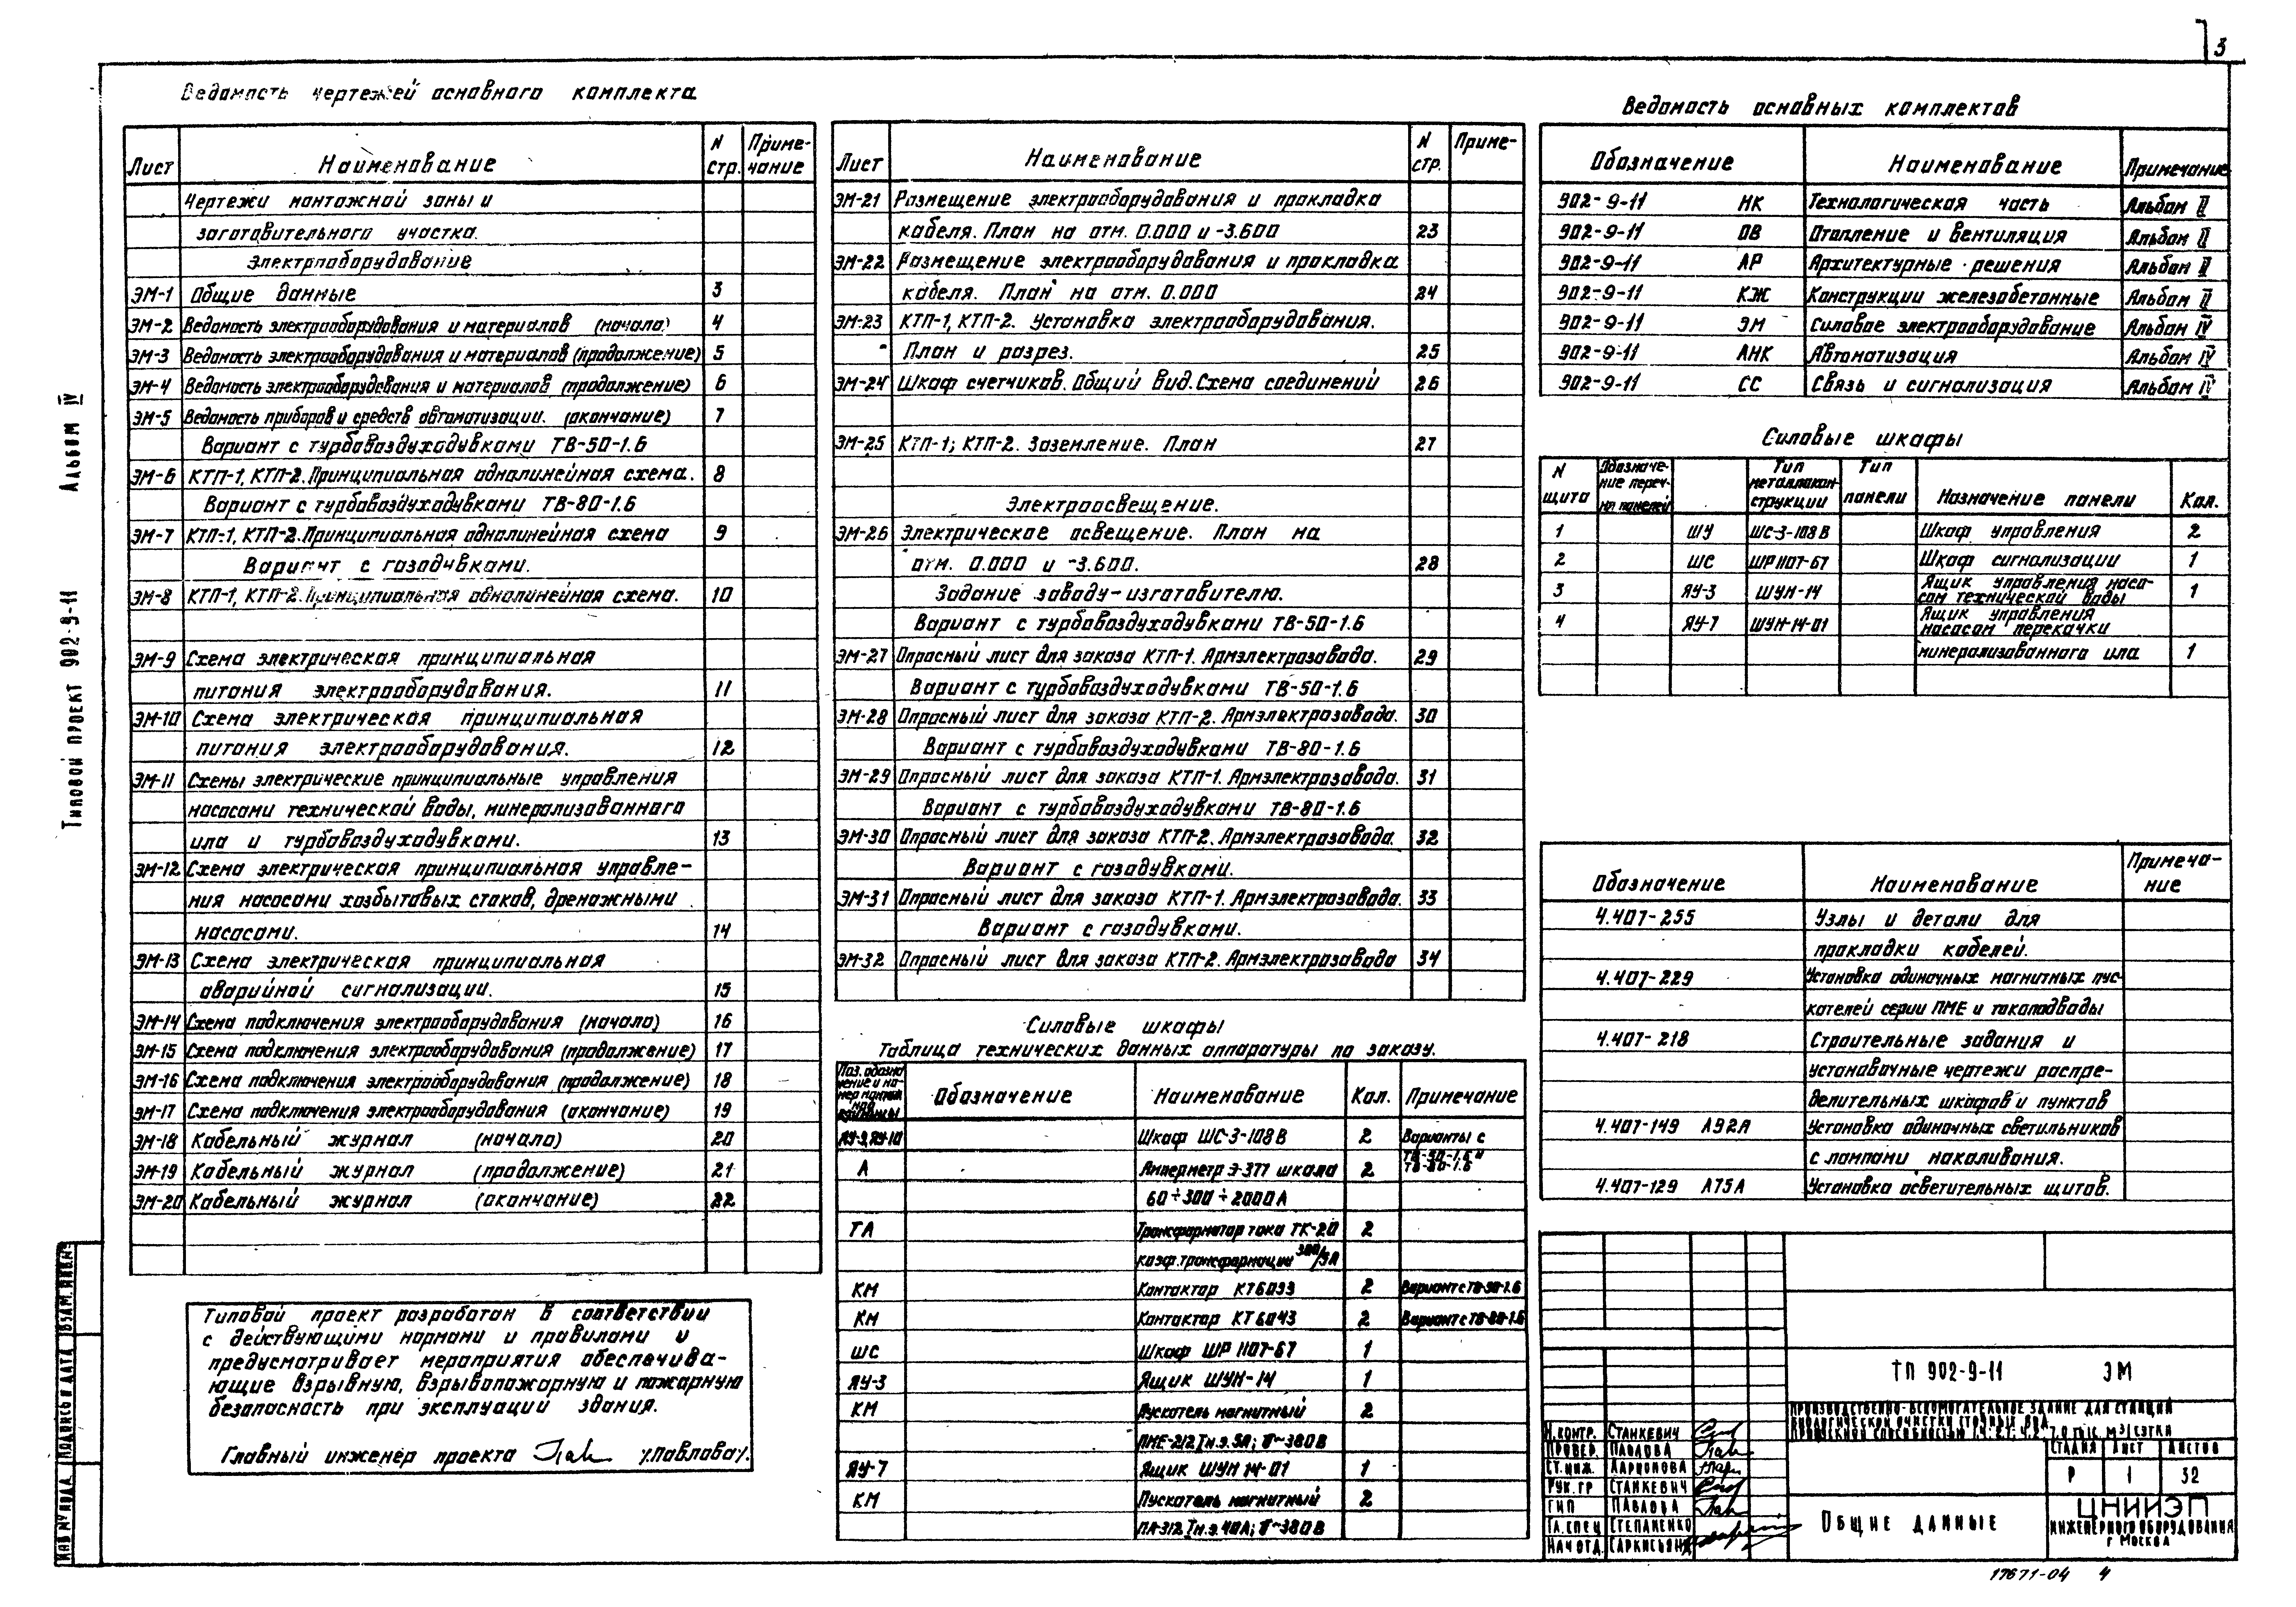 3
Ведомость чертежей основного комплекта
Лист Наименование N стр. Примечание
Чертежи монтажной зоны и
заготовительного участка.
Электрооборудование
ЭМ-1 Общие данные 3
ЭМ-2 Ведомость электрооборудования и материалов (начало) 4
ЭМ-3 Ведомость электрооборудования и материалов (продолжение) 5
ЭМ-4 Ведомость электрооборудования и материалов (продолжение) 6
ЭМ-5 Ведомость приборов и средств автоматизации. (окончание) 7
Вариант с турбовоздуходувками ТВ-50-1.6
ЭМ-6 КТП-1, КТП-2. Принципиальная однолинейная схема. 8
Вариант с турбовоздуходувками ТВ-80-1.6
ЭМ-7 КТП-1, КТП-2. Принципиальная однолинейная схема 9
Вариант с газодувками.
ЭМ-8 КТП-1, КТП-2. Принципиальная однолинейная схема. 10
ЭМ-9 Схема электрическая принципиальная
питания электрооборудования. 11
ЭМ-10 Схема электрическая принципиальная
питания электрооборудования. 12
ЭМ-11 Схемы электрические принципиальные управления
насосами технической воды, минерализованного
ила и турбовоздуходувками. 13
ЭМ-12 Схема электрическая принципиальная управле-
ния насосами хозбытовых стоков, дренажными
насосами. 14
ЭМ-13 Схема электрическая принципиальная
аварийной сигнализации. 15
ЭМ-14 Схема подключения электрооборудования (начало) 16
ЭМ-15 Схема подключения электрооборудования (продолжение) 17
ЭМ-16 Схема подключения электрооборудования (продолжение) 18
ЭМ-17 Схема подключения электрооборудования (окончание) 19
ЭМ-18 Кабельный журнал (начало) 20
ЭМ-19 Кабельный журнал (продолжение) 21
ЭМ-20 Кабельный журнал (окончание) 22
Типовой проект разработан в соответствии
с действующими нормами и правилами и
предусматривает мероприятия обеспечива-
ющие взрывную, взрывопожарную и пожарную
безопасность при эксплуатации здания.
Главный инженер проекта /Павлова/.
Лист Наименование N стр. Приме-
ЭМ-21 Размещение электрооборудования и прокладка
кабеля. План на отм. 0.000 и -3.600 23
ЭМ-22 Размещение электрооборудования и прокладка
кабеля. План на отм. 0.000 24
ЭМ-23 КТП-1, КТП-2. Установка электрооборудования.
План и разрез. 25
ЭМ-24 Шкаф счетчиков. Общий вид. Схема соединений 26
ЭМ-25 КТП-1; КТП-2. Заземление. План 27
Электроосвещение.
ЭМ-26 Электрическое освещение. План на
отм. 0.000 и -3.600. 28
Задание заводу-изготовителю.
Вариант с турбовоздуходувками ТВ-50-1.6
ЭМ-27 Опросный лист для заказа КТП-1. Армэлектрозавода. 29
Вариант с турбовоздуходувками ТВ-50-1.6
ЭМ-28 Опросный лист для заказа КТП-2. Армэлектрозавода. 30
Вариант с турбовоздуходувками ТВ-80-1.6
ЭМ-29 Опросный лист для заказа КТП-1. Армэлектрозавода. 31
Вариант с турбовоздуходувками ТВ-80-1.6
ЭМ-30 Опросный лист для заказа КТП-2. Армэлектрозавода. 32
Вариант с газодувками.
ЭМ-31 Опросный лист для заказа КТП-1. Армэлектрозавода. 33
Вариант с газодувками.
ЭМ-32 Опросный лист для заказа КТП-2. Армэлектрозавода 34
Силовые шкафы
Таблица технических данных аппаратуры по заказу.
Обозначение Наименование Кол. Примечание
ЯУ-9, ЯУ-10 Шкаф ШС-3-108В 2 Варианты с
ТВ-50-1.6 и
ТВ-80-1.6
А Амперметр Э-377 шкала 2
60÷300÷2000А
ТА Трансформатор тока ТК-20 2
коэф. трансформации 300/5А
КМ Контактор КТ6033 2 Вариант с ТВ-50-1.6
КМ Контактор КТ6043 2 Вариант с ТВ-80-1.6
ШС Шкаф ШР 1107-67 1
ЯУ-3 Ящик ШУН-14 1
КМ Пускатель магнитный 2
ПМЕ-212 Iн.э. 5А; U~380В
ЯУ-7 Ящик ШУН 14-01 1
КМ Пускатель магнитный 2
ПА-312 Iн.э. 40А; U~380В
Ведомость основных комплектов
Обозначение Наименование Примечание
902-9-11 НК Технологическая часть Альбом II
902-9-11 ОВ Отопление и вентиляция Альбом II
902-9-11 АР Архитектурные решения Альбом II
902-9-11 КЖ Конструкции железобетонные Альбом II
902-9-11 ЭМ Силовое электрооборудование Альбом IV
902-9-11 АНК Автоматизация Альбом IV
902-9-11 СС Связь и сигнализация Альбом IV
Силовые шкафы
N щита Обозначение переч-ня панелей Тип металлокон-струкции Тип панели Назначение панели Кол.
1 ШУ ШС-3-108В Шкаф управления 2
2 ШС ШР1107-67 Шкаф сигнализации 1
3 ЯУ-3 ШУН-14 Ящик управления насо-
сом технической воды 1
4 ЯУ-7 ШУН-14-01 Ящик управления
насосом перекачки
минерализованного ила 1
Обозначение Наименование Примеча-
ние
4.407-255 Узлы и детали для
прокладки кабелей.
4.407-229 Установка одиночных магнитных пус-
кателей серии ПМЕ и токоподводы
4.407-218 Строительные задания и
установочные чертежи распре-
делительных шкафов и пунктов
4.407-149 А92А Установка одиночных светильников
с лампами накаливания.
4.407-129 А75А Установка осветительных щитов.
ТП 902-9-11 ЭМ
Производственно-вспомогательное здание для станций
биологической очистки сточных вод
тыс. м3/сутки
Н.контр. Станкевич
Провер. Павлова
Ст.инж. Ларионова
Рук.гр Станкевич
ГИП Павлова
Гл.спец Степаненко
Нач.отд.
Стадия Лист Листов
Р 1 32
Общие данные
ЦНИИЭП
инженерного оборудования
г Москва
17671-04 4
Типовой проект 902-9-11 Альбом IV
Инв № подл. Подпись и дата Взам. инв. №